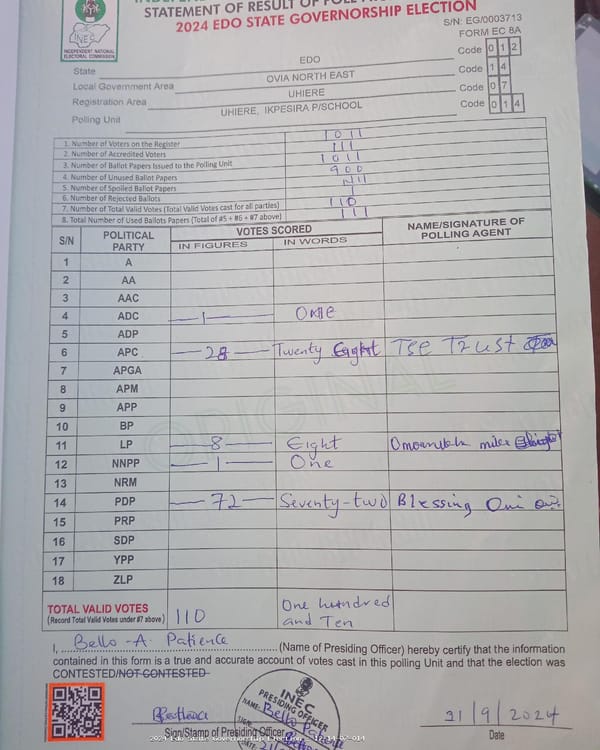 STATEMENT OF RESULT OF POLL
2024 EDO STATE GOVERNORSHIP ELECTION
S/N: EG/0003713
FORM EC 8A
INEC
INDEPENDENT NATIONAL ELECTORAL COMMISSION
State EDO Code 0 1 2
Local Government Area OVIA NORTH EAST Code 1 4
Registration Area UHIERE Code 0 7
Polling Unit UHIERE, IKPESIRA P/SCHOOL Code 0 1 4
1. Number of Voters on the Register 1011
2. Number of Accredited Voters 111
3. Number of Ballot Papers Issued to the Polling Unit 1011
4. Number of Unused Ballot Papers 900
5. Number of Spoiled Ballot Papers Nil
6. Number of Rejected Ballots 1
7. Number of Total Valid Votes (Total Valid Votes cast for all parties) 110
8. Total Number of Used Ballots Papers (Total of #5 + #6 + #7 above) 111
S/N POLITICAL PARTY VOTES SCORED NAME/SIGNATURE OF POLLING AGENT
IN FIGURES IN WORDS
1 A
2 AA
3 AAC
4 ADC 1 One
5 ADP
6 APC 28 Twenty Eight Tse Trust
7 APGA
8 APM
9 APP
10 BP
11 LP 8 Eight
12 NNPP 1 One
13 NRM
14 PDP 72 Seventy-two Blessing Oni
15 PRP
16 SDP
17 YPP
18 ZLP
ORIGINAL
TOTAL VALID VOTES
(Record Total Valid Votes under #7 above) 110 One hundred and Ten
I, Bello -A- Patience (Name of Presiding Officer) hereby certify that the information
contained in this form is a true and accurate account of votes cast in this polling Unit and that the election was
CONTESTED/NOT CONTESTED
INEC
PRESIDING OFFICER
NAME: Bello Patience
SIGN:
DATE:
Sign/Stamp of Presiding Officer
21/9/2024
Date